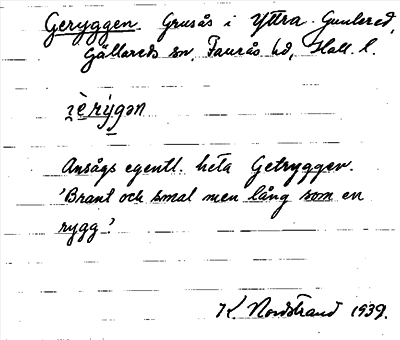 Geryggen. Grusås i Yttra Gunlered,
Gällareds sn, Faurås hd, Hall. l.
Ansågs egentl. heta Getryggen.
'Brant och smal men lång som en
rygg.'
K. Nordstrand 1939.